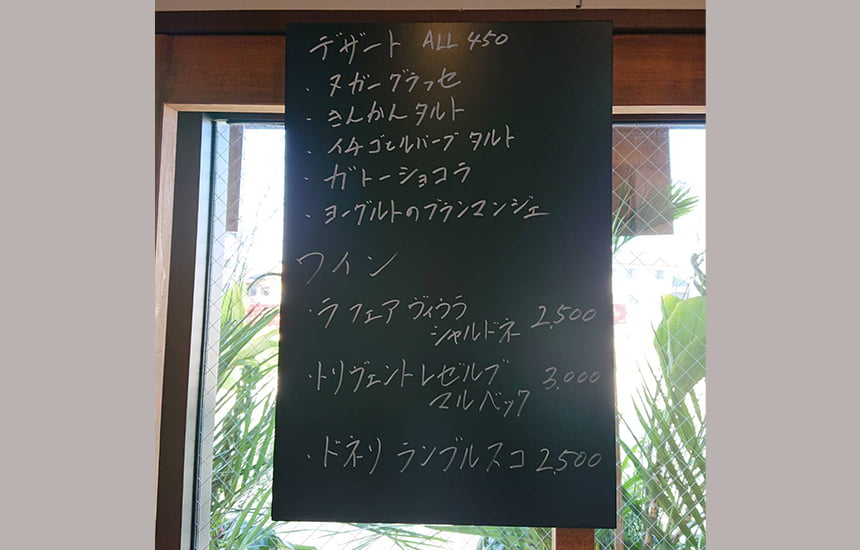 デザート ALL 450
・ヌガーグラッセ
・きんかんタルト
・イチゴとルバーブタルト
・ガトーショコラ
・ヨーグルトのブランマンジェ
ワイン
・ラフェアヴィウラ
シャルドネ 2,500
・トリヴェントレゼルブ 3,000
マルベック
・ドネリ ランブルスコ 2,500